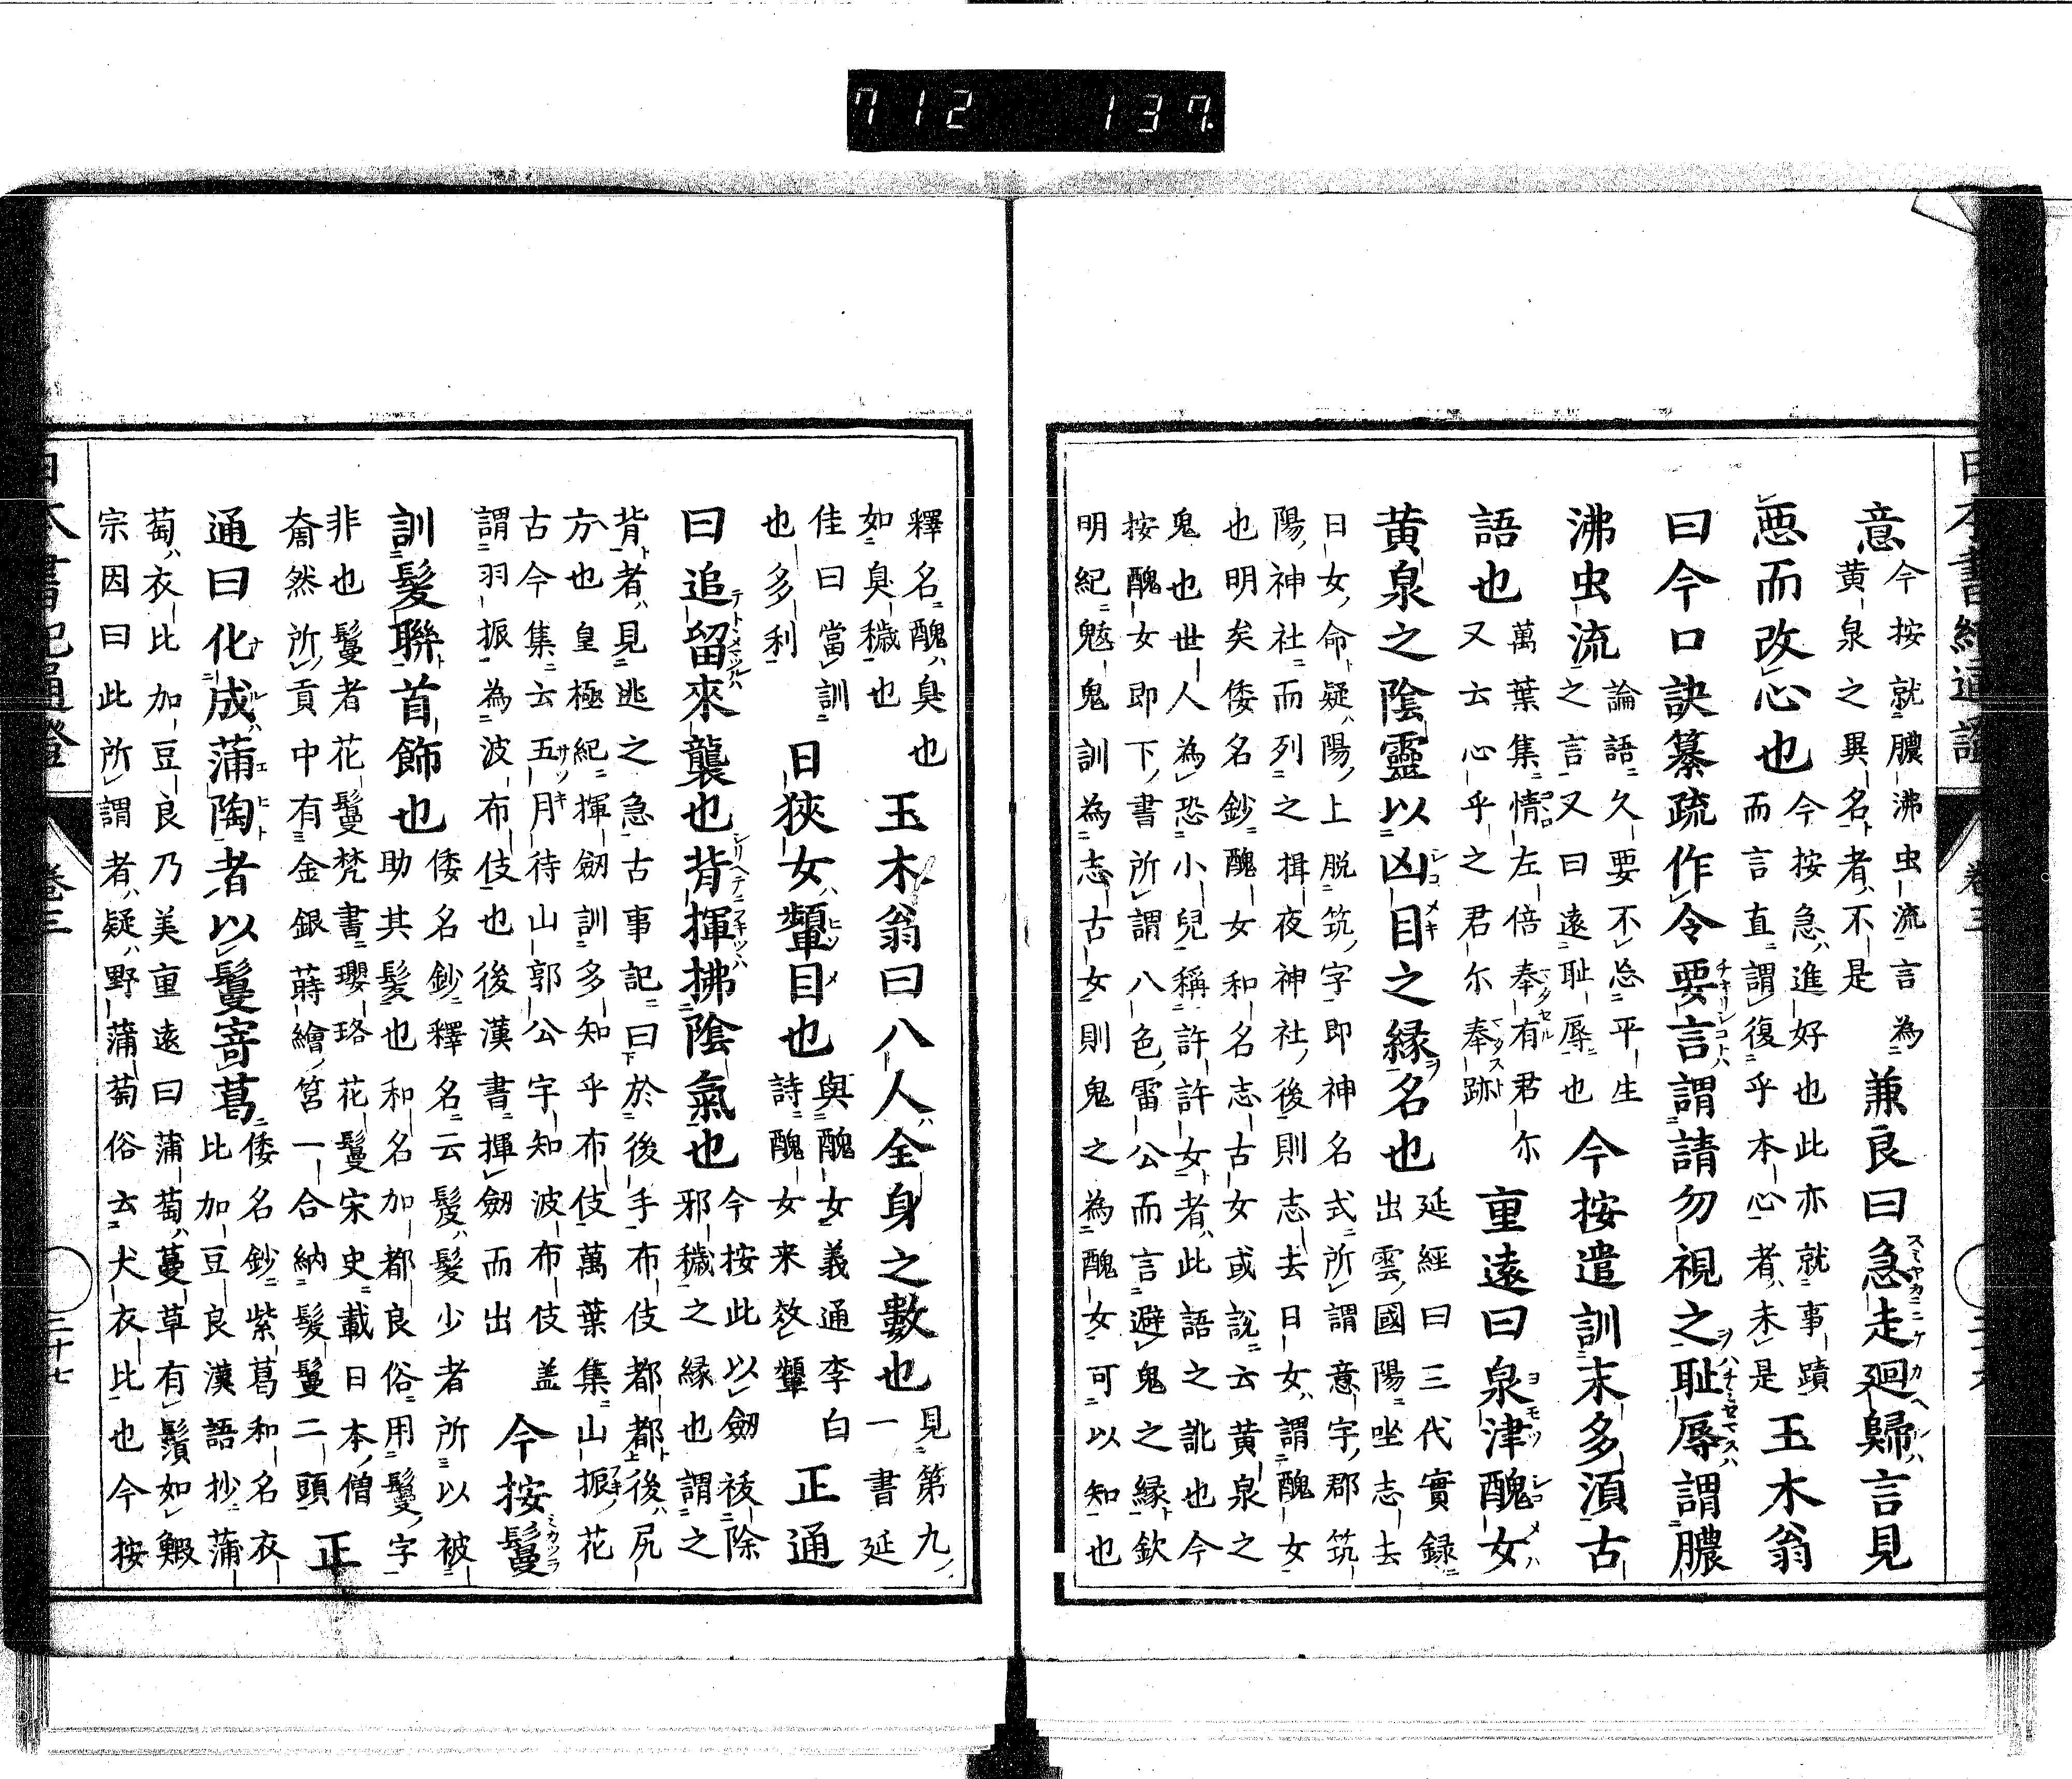 712 137
意今按就膿沸虫流言為
黄泉之異名者不是
兼良曰急走廻歸言見
惡而改心也今按急進好也此亦就事蹟
而言直謂復乎本心者未是
玉木翁
曰今口訣纂疏作令要言謂請勿視之耻辱謂膿
沸虫流論語久要不忘平生
之言又曰遠耻辱也
今按遣訓末多湏古
語也萬葉集情左倍奉有君尓
又云心乎之君尓奉跡
重遠曰泉津醜女
黄泉之陰靈以凶目之縁名也延經曰三代實録
出雲國陽坐志去
日女命疑陽上脱筑字即神名式所謂意宇郡筑
陽神社而列之揖夜神社後則志去日女謂醜女
也明矣倭名鈔醜女和名志古女或說云黄泉之
鬼也世人為恐小兒稱許許女者此語之訛也今
按醜女即下書所謂八色雷公而言避鬼之縁欽
明紀魃鬼訓為志古女則鬼之為醜女可以知也
日本書紀通證 卷三
釋名醜臭也
如臭穢也
玉木翁曰八人全身之數也見第九
一書延
佳曰當訓
也多利
日狹女顰目也與醜女義通李白
詩醜女来效顰
正通
曰追留來襲也背揮拂陰氣也今按此以劔祓除
邪穢之縁也謂之
背者見逃之急古事記曰於後手布伎都都後尻
方也皇極紀揮劔訓多知乎布伎萬葉集山振花
古今集云五月待山郭公宇知波布伎盖
謂羽振為波布伎也後漢書揮劔而出
今按鬘
訓髮聯首飾也倭名鈔釋名云髲髮少者所以被
助其髮也和名加都良俗用鬘字
非也鬘者花鬘梵書瓔珞花鬘宋史載日本僧
奝然所貢中有金銀蒔繪筥一合納髮鬘二頭
正
通曰化成蒲陶者以鬘寄葛倭名鈔紫葛和名衣
比加豆良漢語抄蒲
萄衣比加豆良乃美重遠曰蒲萄蔓草有鬚如鰕
宗因曰此所謂者疑野蒲萄俗云犬衣比也今按
日本書紀通證 卷三 三十七